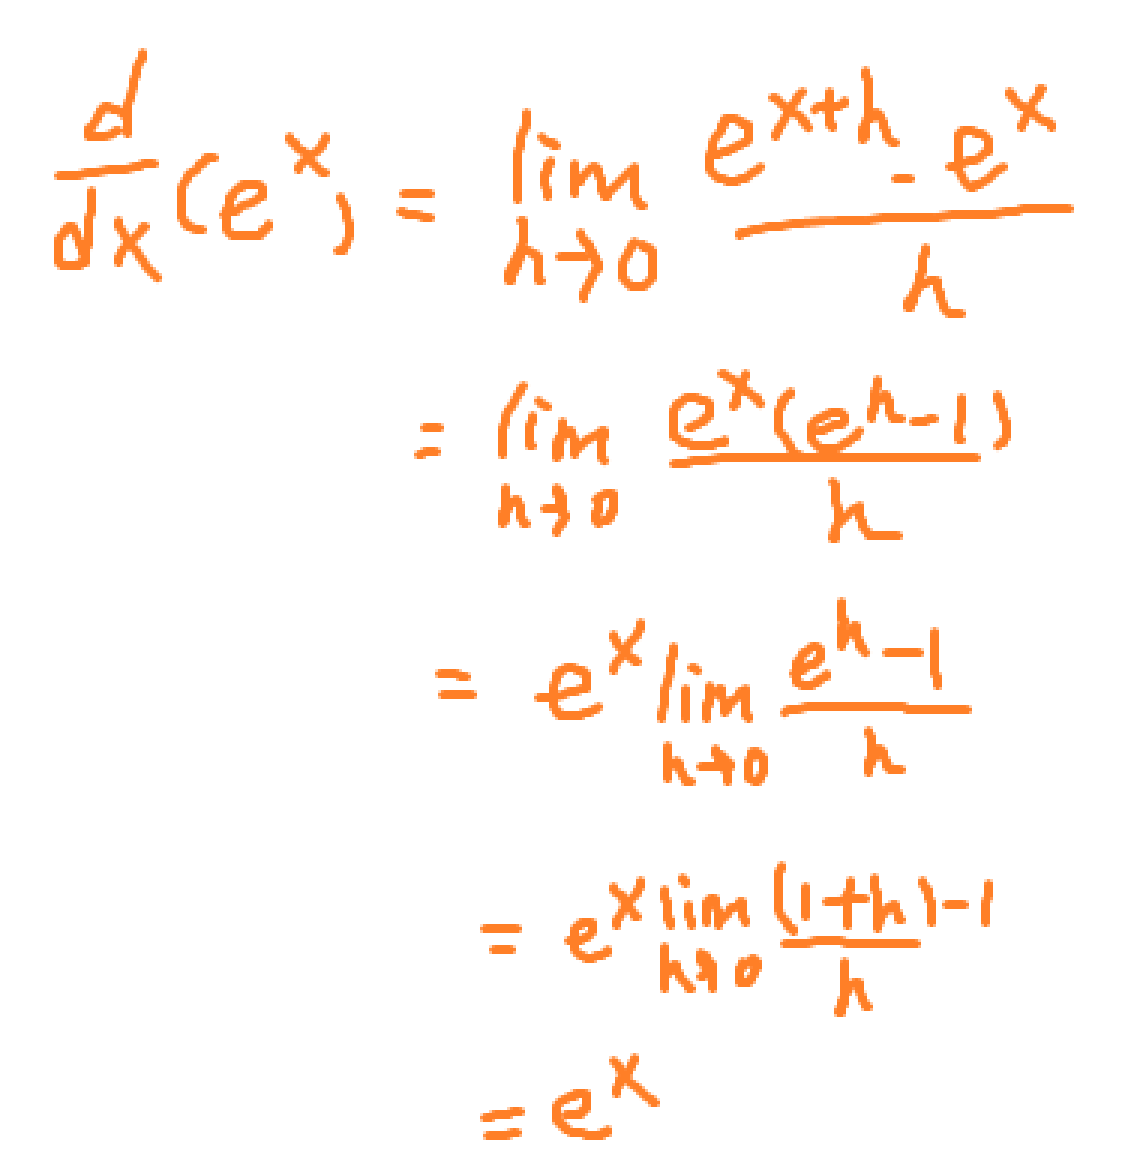 d/dx (e^x) = lim_{h→0} (e^{x+h} - e^x)/h
= lim_{h→0} e^x(e^h - 1)/h
= e^x lim_{h→0} (e^h - 1)/h
= e^x lim_{h→0} ((1+h) - 1)/h
= e^x